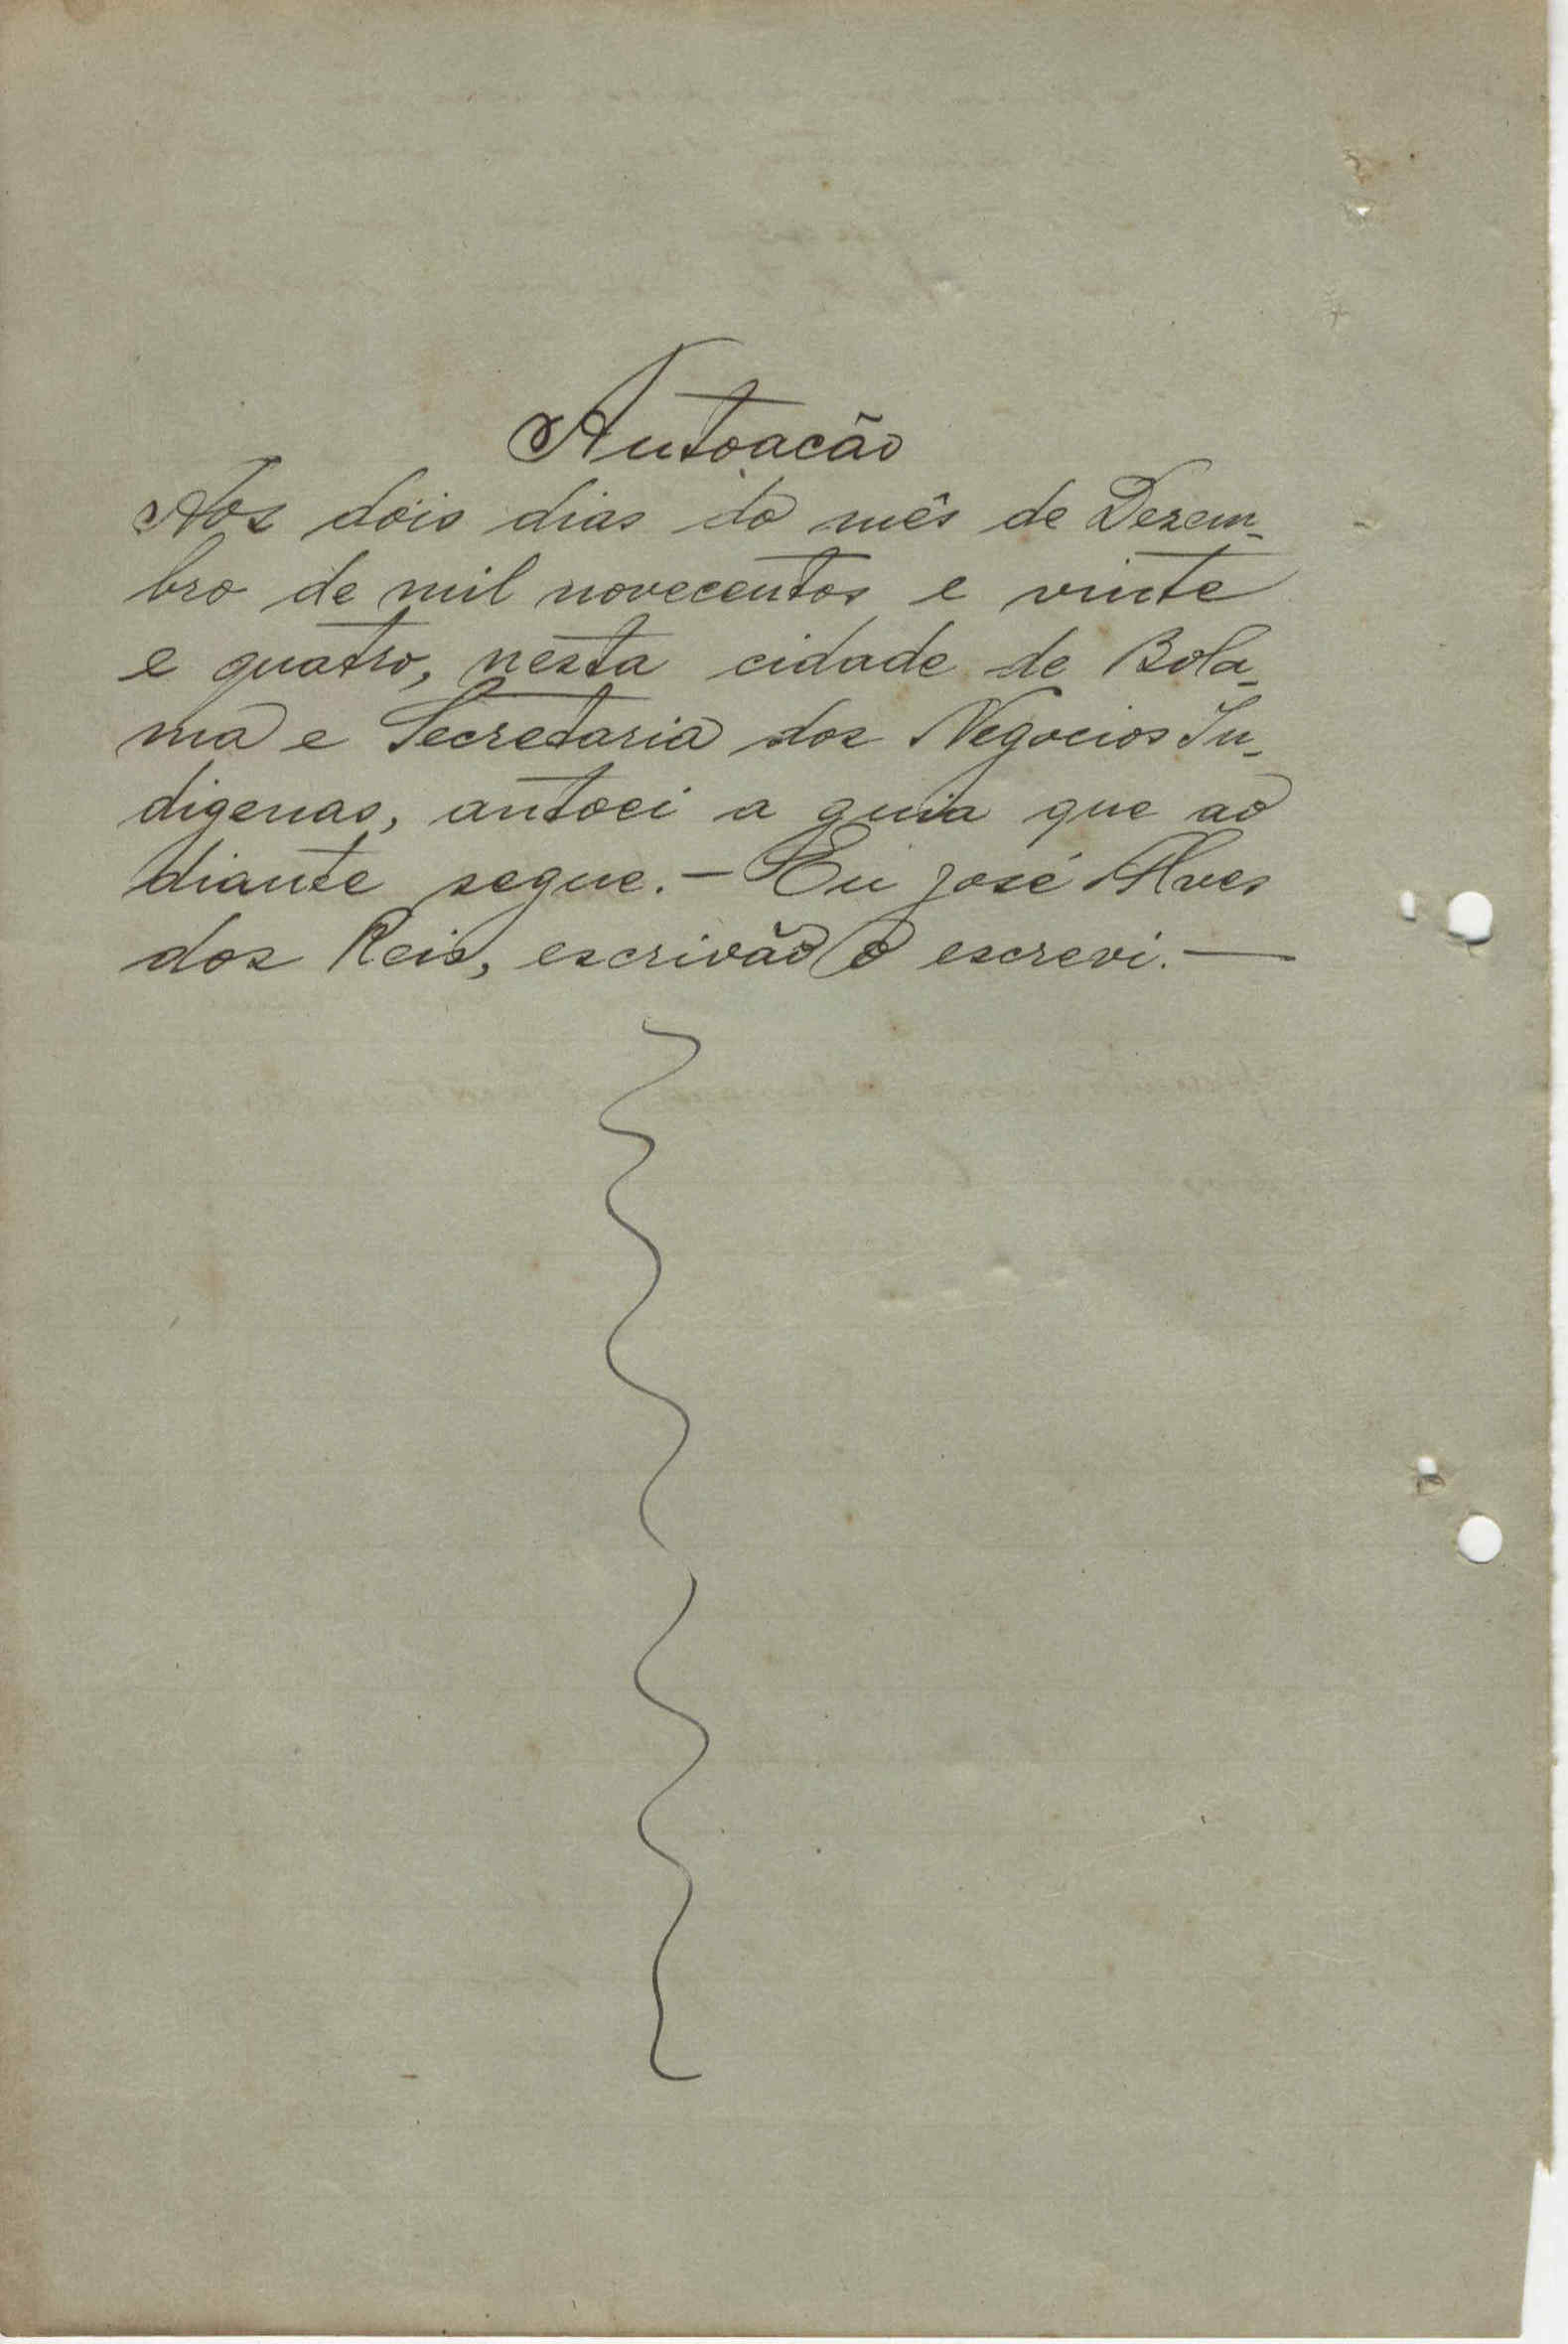 Autoacão
Aos dois dias do mês de Dezem-
bro de mil novecentos e vinte
e quatro, nesta cidade de Bola-
ma e Secretaria dos Negocios In-
digenas, autoei a guia que ao
diante segue. — Eu José Alves
dos Reis, escrivão o escrevi. —